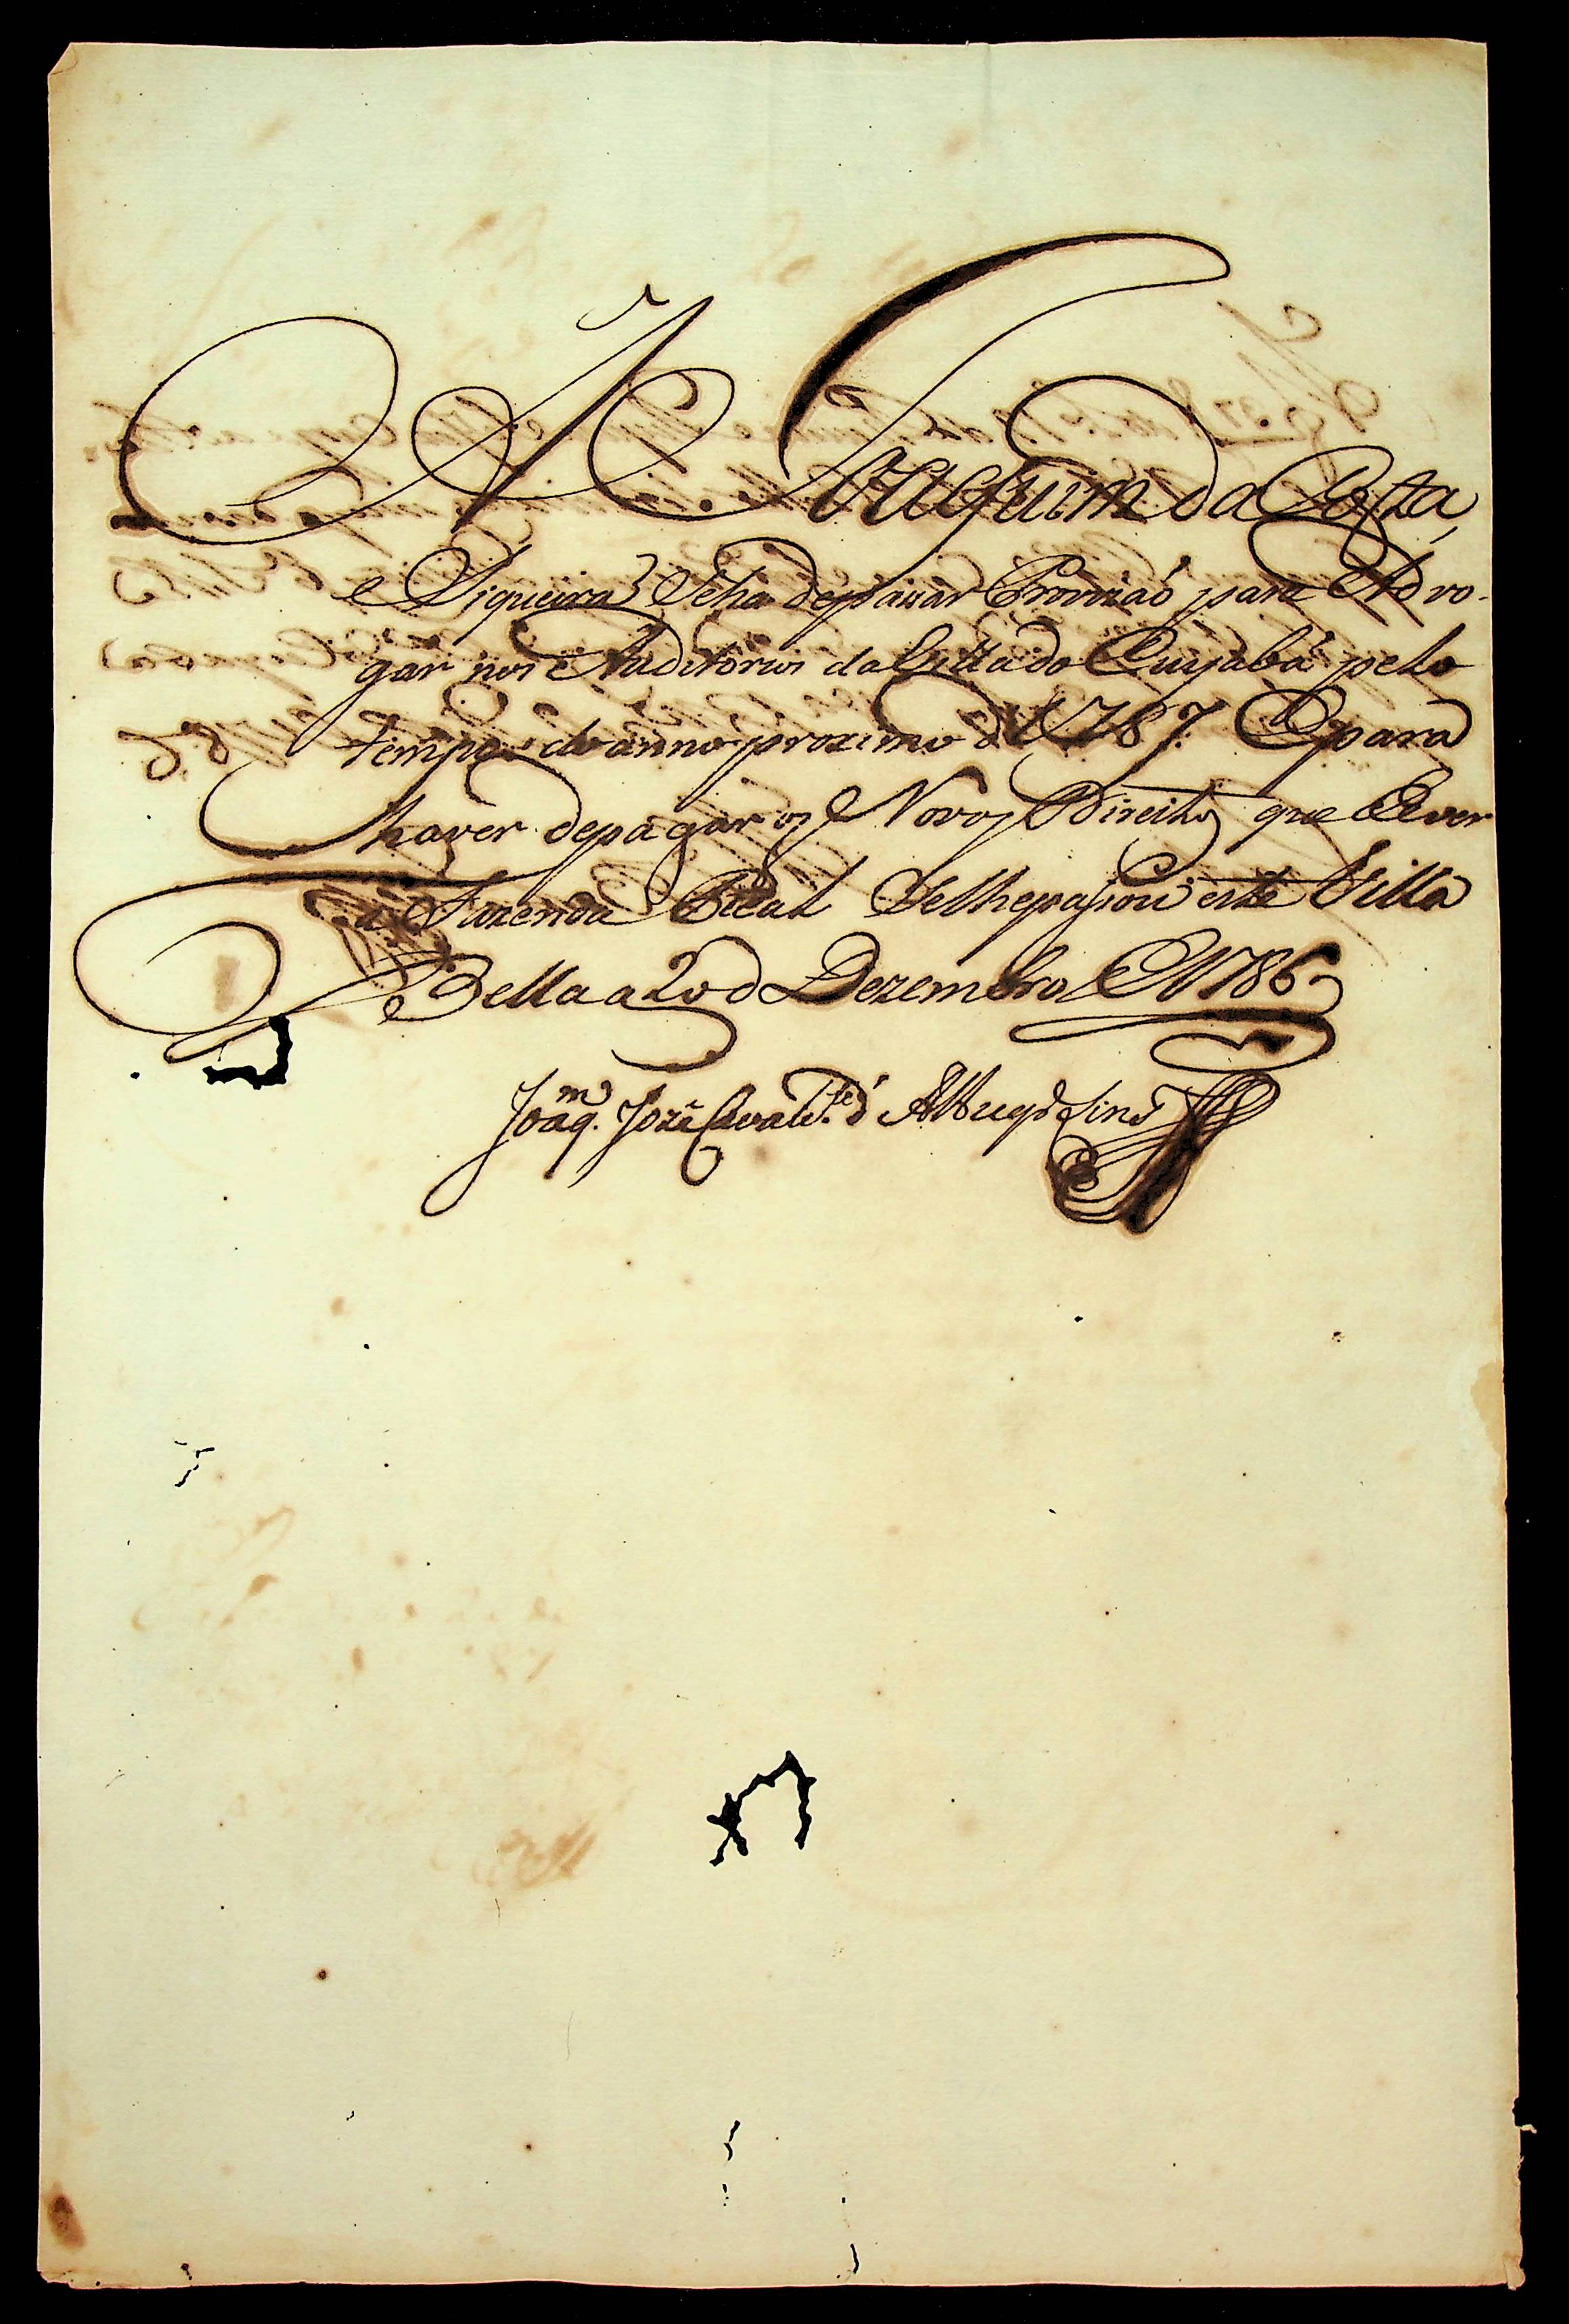 A Joaquim da Costa,
e Siqueira Seha depassar Provizaõ para Advo-
gar nos Auditorios da Villa do Cuyabá pelo
tempo do anno proximo d 1787. E para
haver depagar os Novos Direitos que dever
a Fazenda Real Selhepasou este Villa
Bella a 20 d Dezembro d 1786
Joaq.m Jozé Cavalc.te d' Albuqr Lins